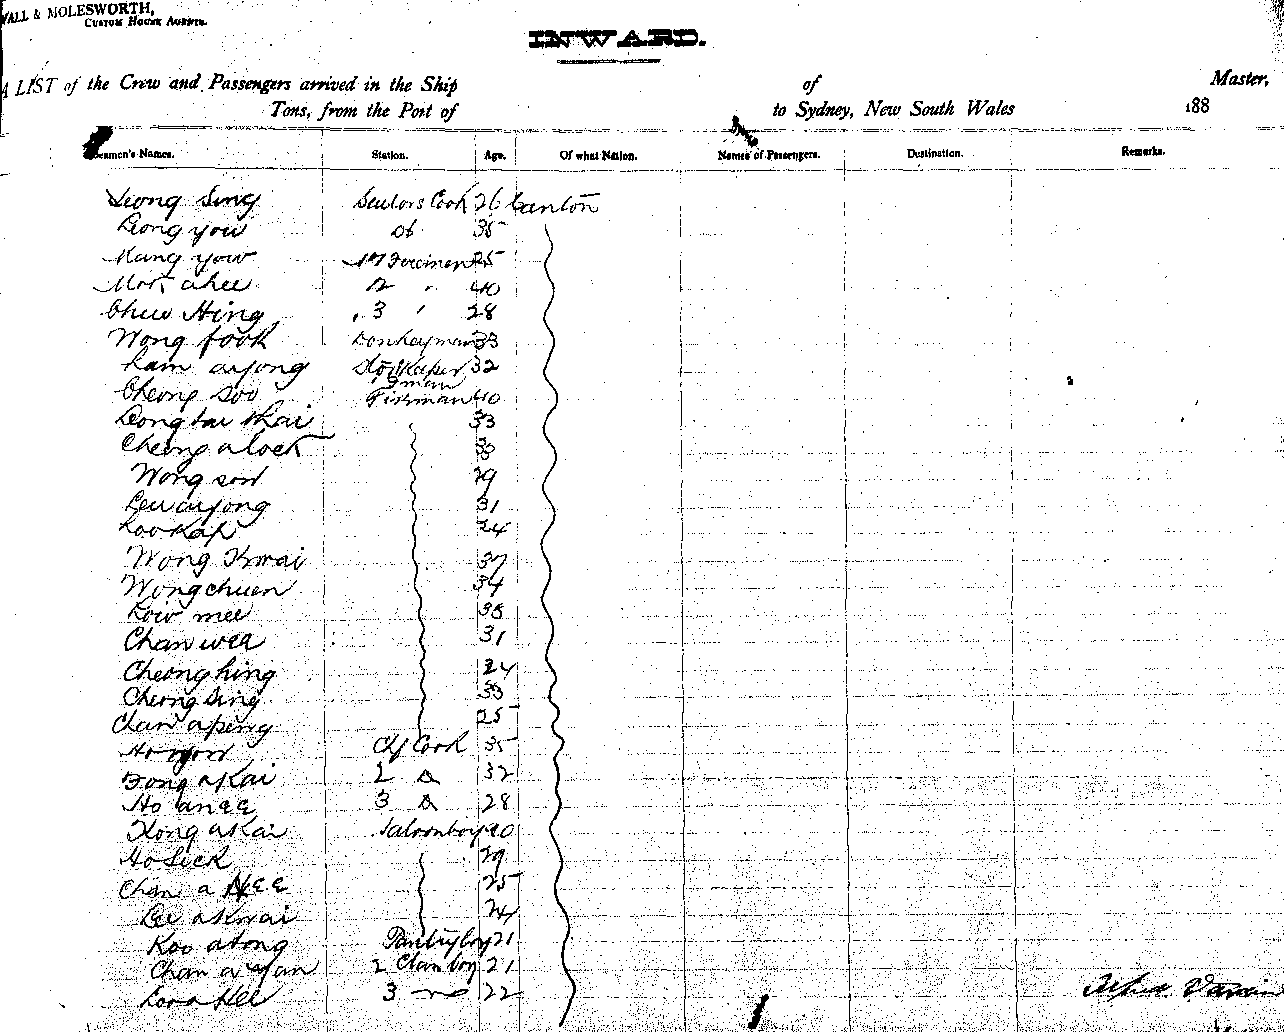 WALL & MOLESWORTH,
CUSTOM HOUSE AGENTS.
INWARD.
A LIST of the Crew and Passengers arrived in the Ship of Master,
Tons, from the Port of to Sydney, New South Wales 188
Seamen's Names. Station. Age. Of what Nation. Names of Passengers. Destination. Remarks.
Leong Sing Sailors Cook 26 Canton
Leong you do 35
Kang yow 1st Firemen 25
Mok ahee 2 " 40
Chuu Hing 3 " 28
Wong fook Donkeyman 33
Lam ayong 32
Cheong Soo Fireman 40
Leong tai Khai 33
Cheong alock 30
Wong son 29
Leu ayong 31
Loo Kap 24
Wong Kwai 37
Wong chuen 34
Low mee 38
Chan wea 31
Cheong hing 24
Cheong Sing 33
Chan apeng 25
Ho yow Chf Cook 35
Fong a Kai 2 do 32
Ho anee 3 do 28
Kong a Kai Saloonboy 20
Ho Sick 29
Chan a Hee 25
Lee a Kwai 24
Koo atong Pantryboy 21
Chan a Yan 2 21
3 22